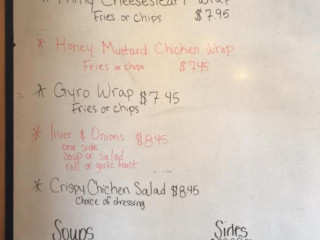 * Philly Cheesesteak Wrap
Fries or chips $7.95
* Honey Mustard Chicken Wrap
Fries or chips $7.45
* Gyro Wrap $7.45
Fries or chips
* liver & Onions $8.45
one side
soup or salad
roll or garlic toast
* Crispy Chicken Salad $8.45
Choice of dressing
Soups Sides